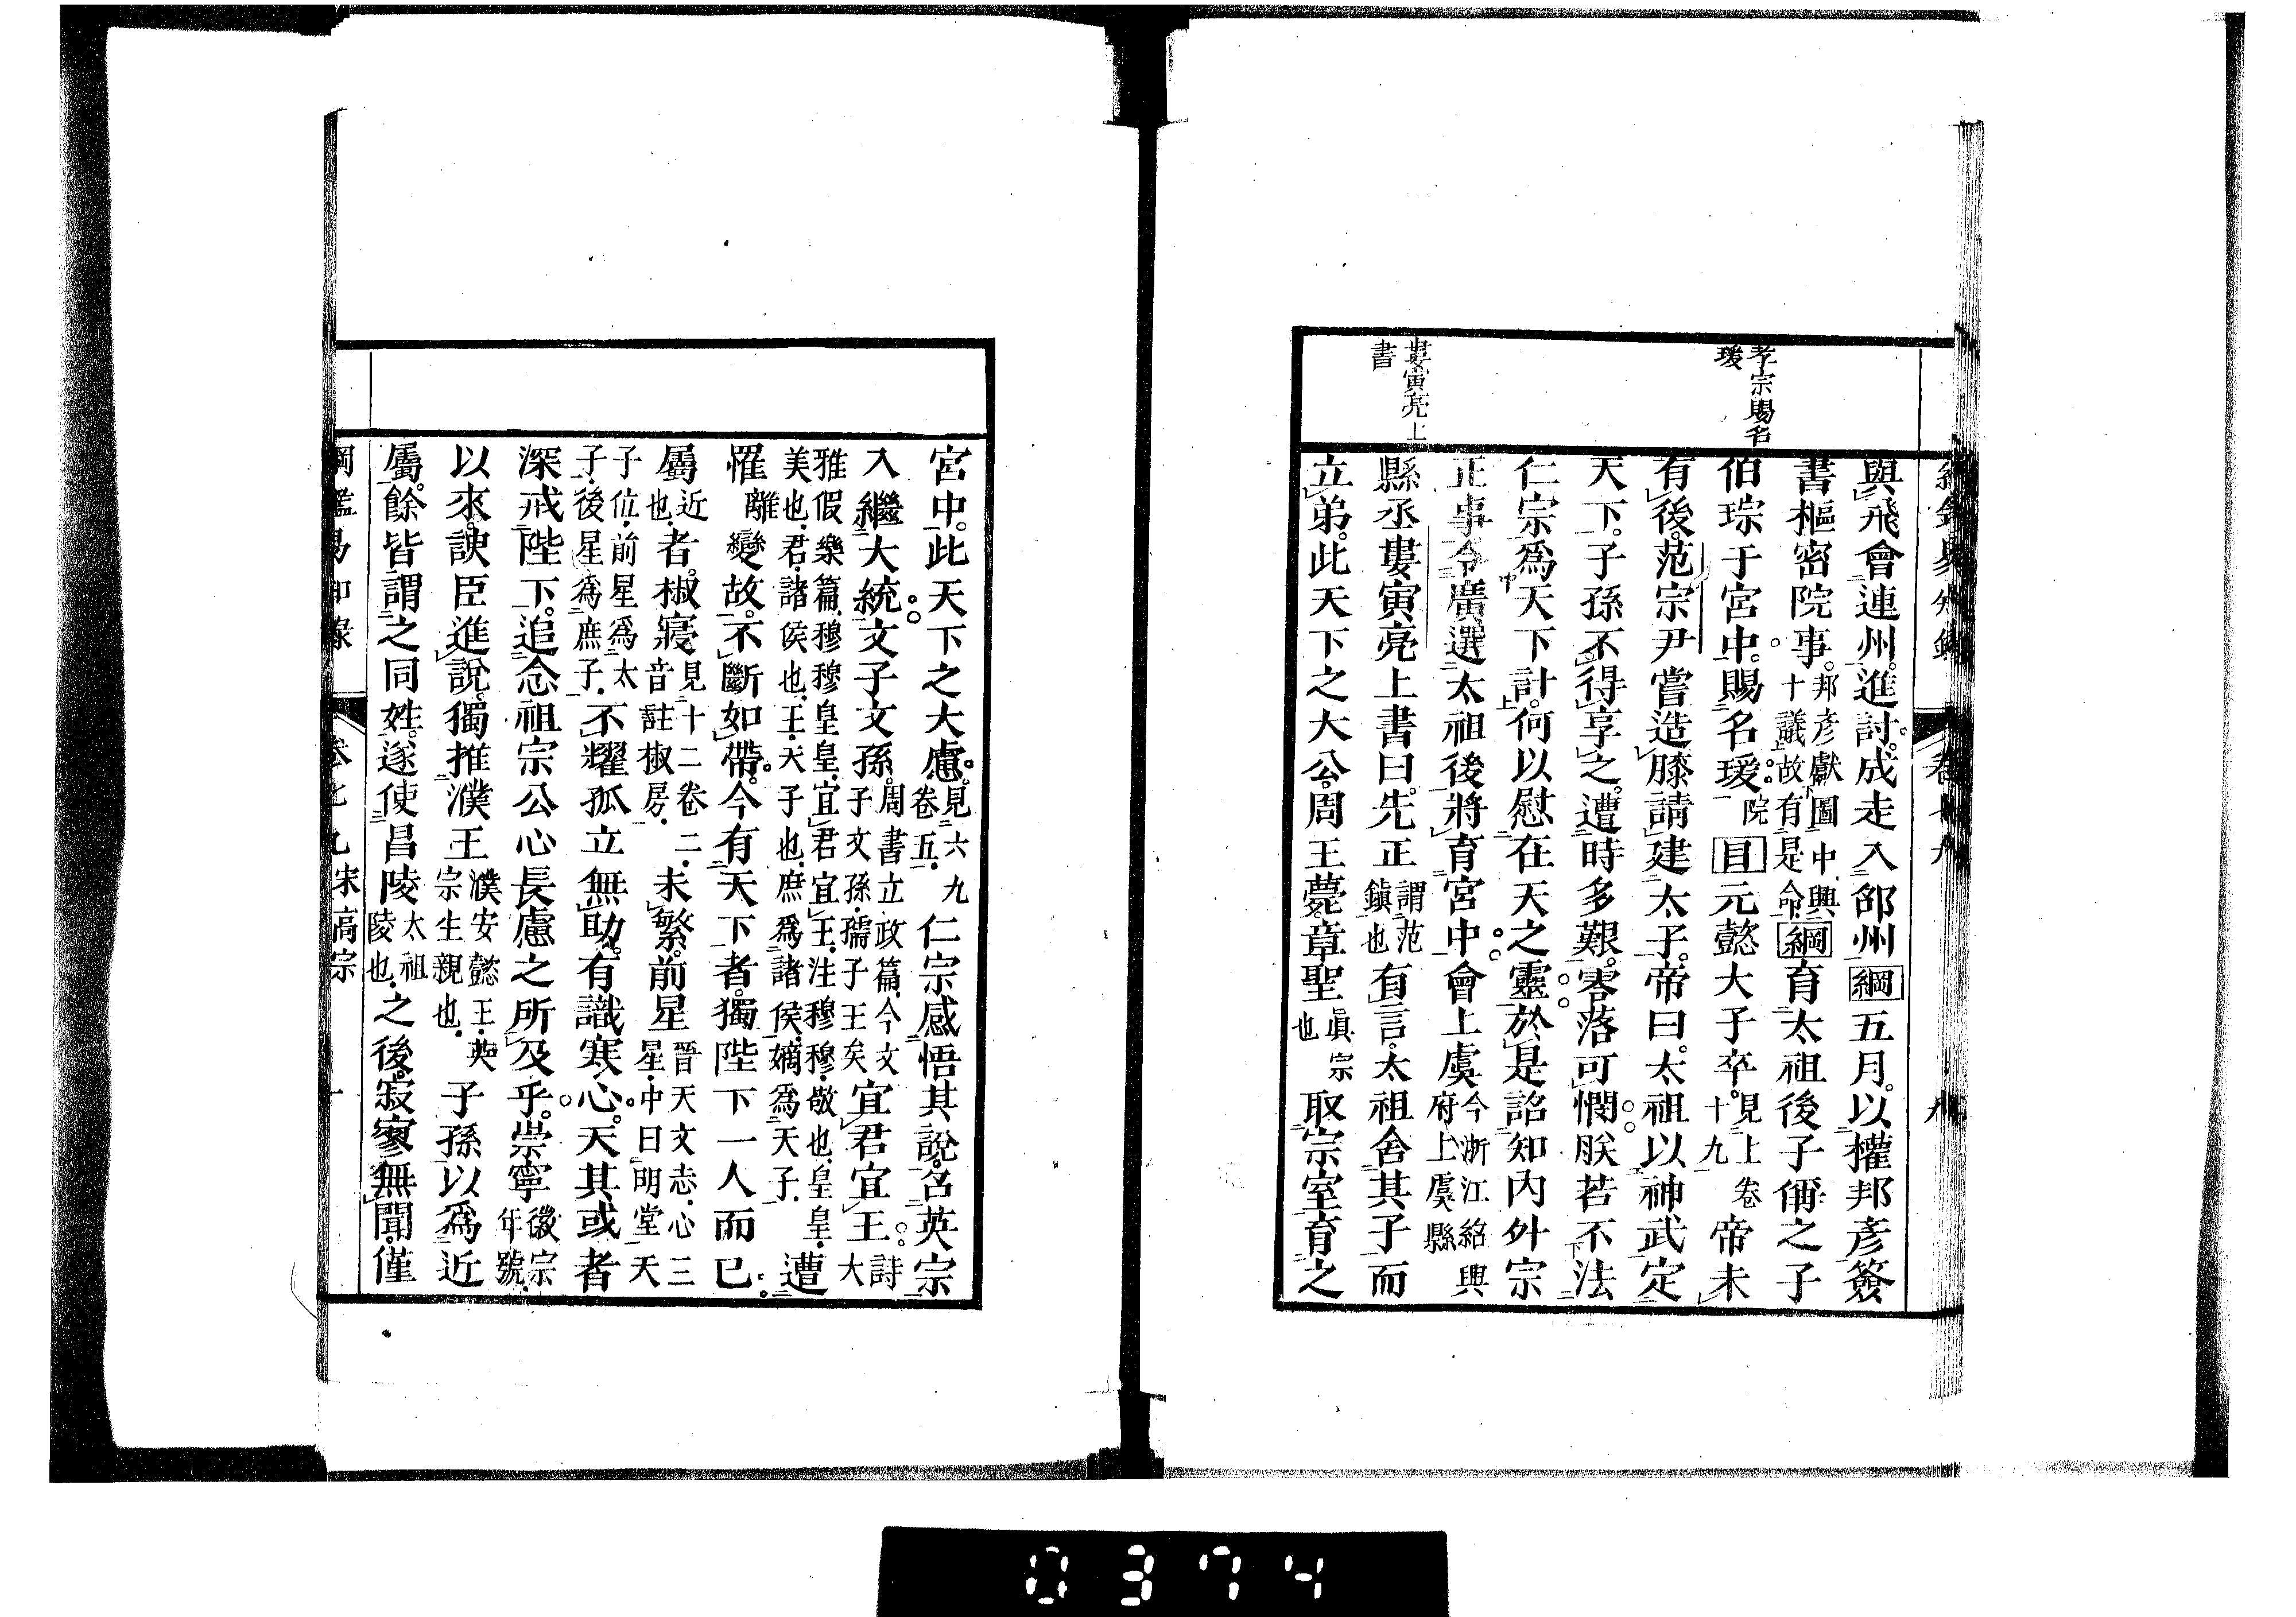 孝宗賜名
瑗
婁寅亮上
書
與飛會連州。進討。成走入邵州綱五月。以權邦彥簽
書樞密院事。邦彥獻圖中興十議故有是命綱育太祖後子偁之子
伯琮于宮中。賜名瑗。院目元懿大子卒。見上卷十九帝未
有後。范宗尹嘗造膝請建太子。帝曰。太祖以神武定
天下。子孫不得享之。遭時多艱。零落可憫。朕若不法
仁宗。爲天下計。何以慰在天之靈。於是詔知內外宗
正事令廣選太祖後。將育宮中。會上虞今浙江紹興府上虞縣
縣丞婁寅亮上書曰。先正謂范鎮也有言。太祖舍其子而
立弟。此天下之大公。周王薨。章聖眞宗也取宗室育之
宮中。此天下之大慮。見六九卷五。仁宗感悟其說。召英宗
入繼大統。文子文孫。周書立政篇。今文子文孫。孺子王矣宜君宜王。詩大
雅假樂篇。穆穆皇皇。宜君宜王。注穆穆。敬也。皇皇。美也。君。諸侯也。王。天子也。庶爲諸侯。嫡爲天子。遭
罹離變故。不斷如帶。今有天下者。獨陛下一人而已。
屬近也。者。椒寢見十二卷二。音註椒房。未繁。前星晉天文志。心三星。中曰明堂天
子位。前星爲太子。後星爲庶子。不耀。孤立無助。有識寒心。天其或者
深戒陛下。追念祖宗公心長慮之所及乎。崇寧徽宗年號。
以來。諛臣進說。獨推濮王濮安懿王。英宗生親也。子孫以爲近
屬。餘皆謂之同姓。遂使昌陵太祖陵也。之後。寂寥無聞。僅
卷七九宋高宗
0374